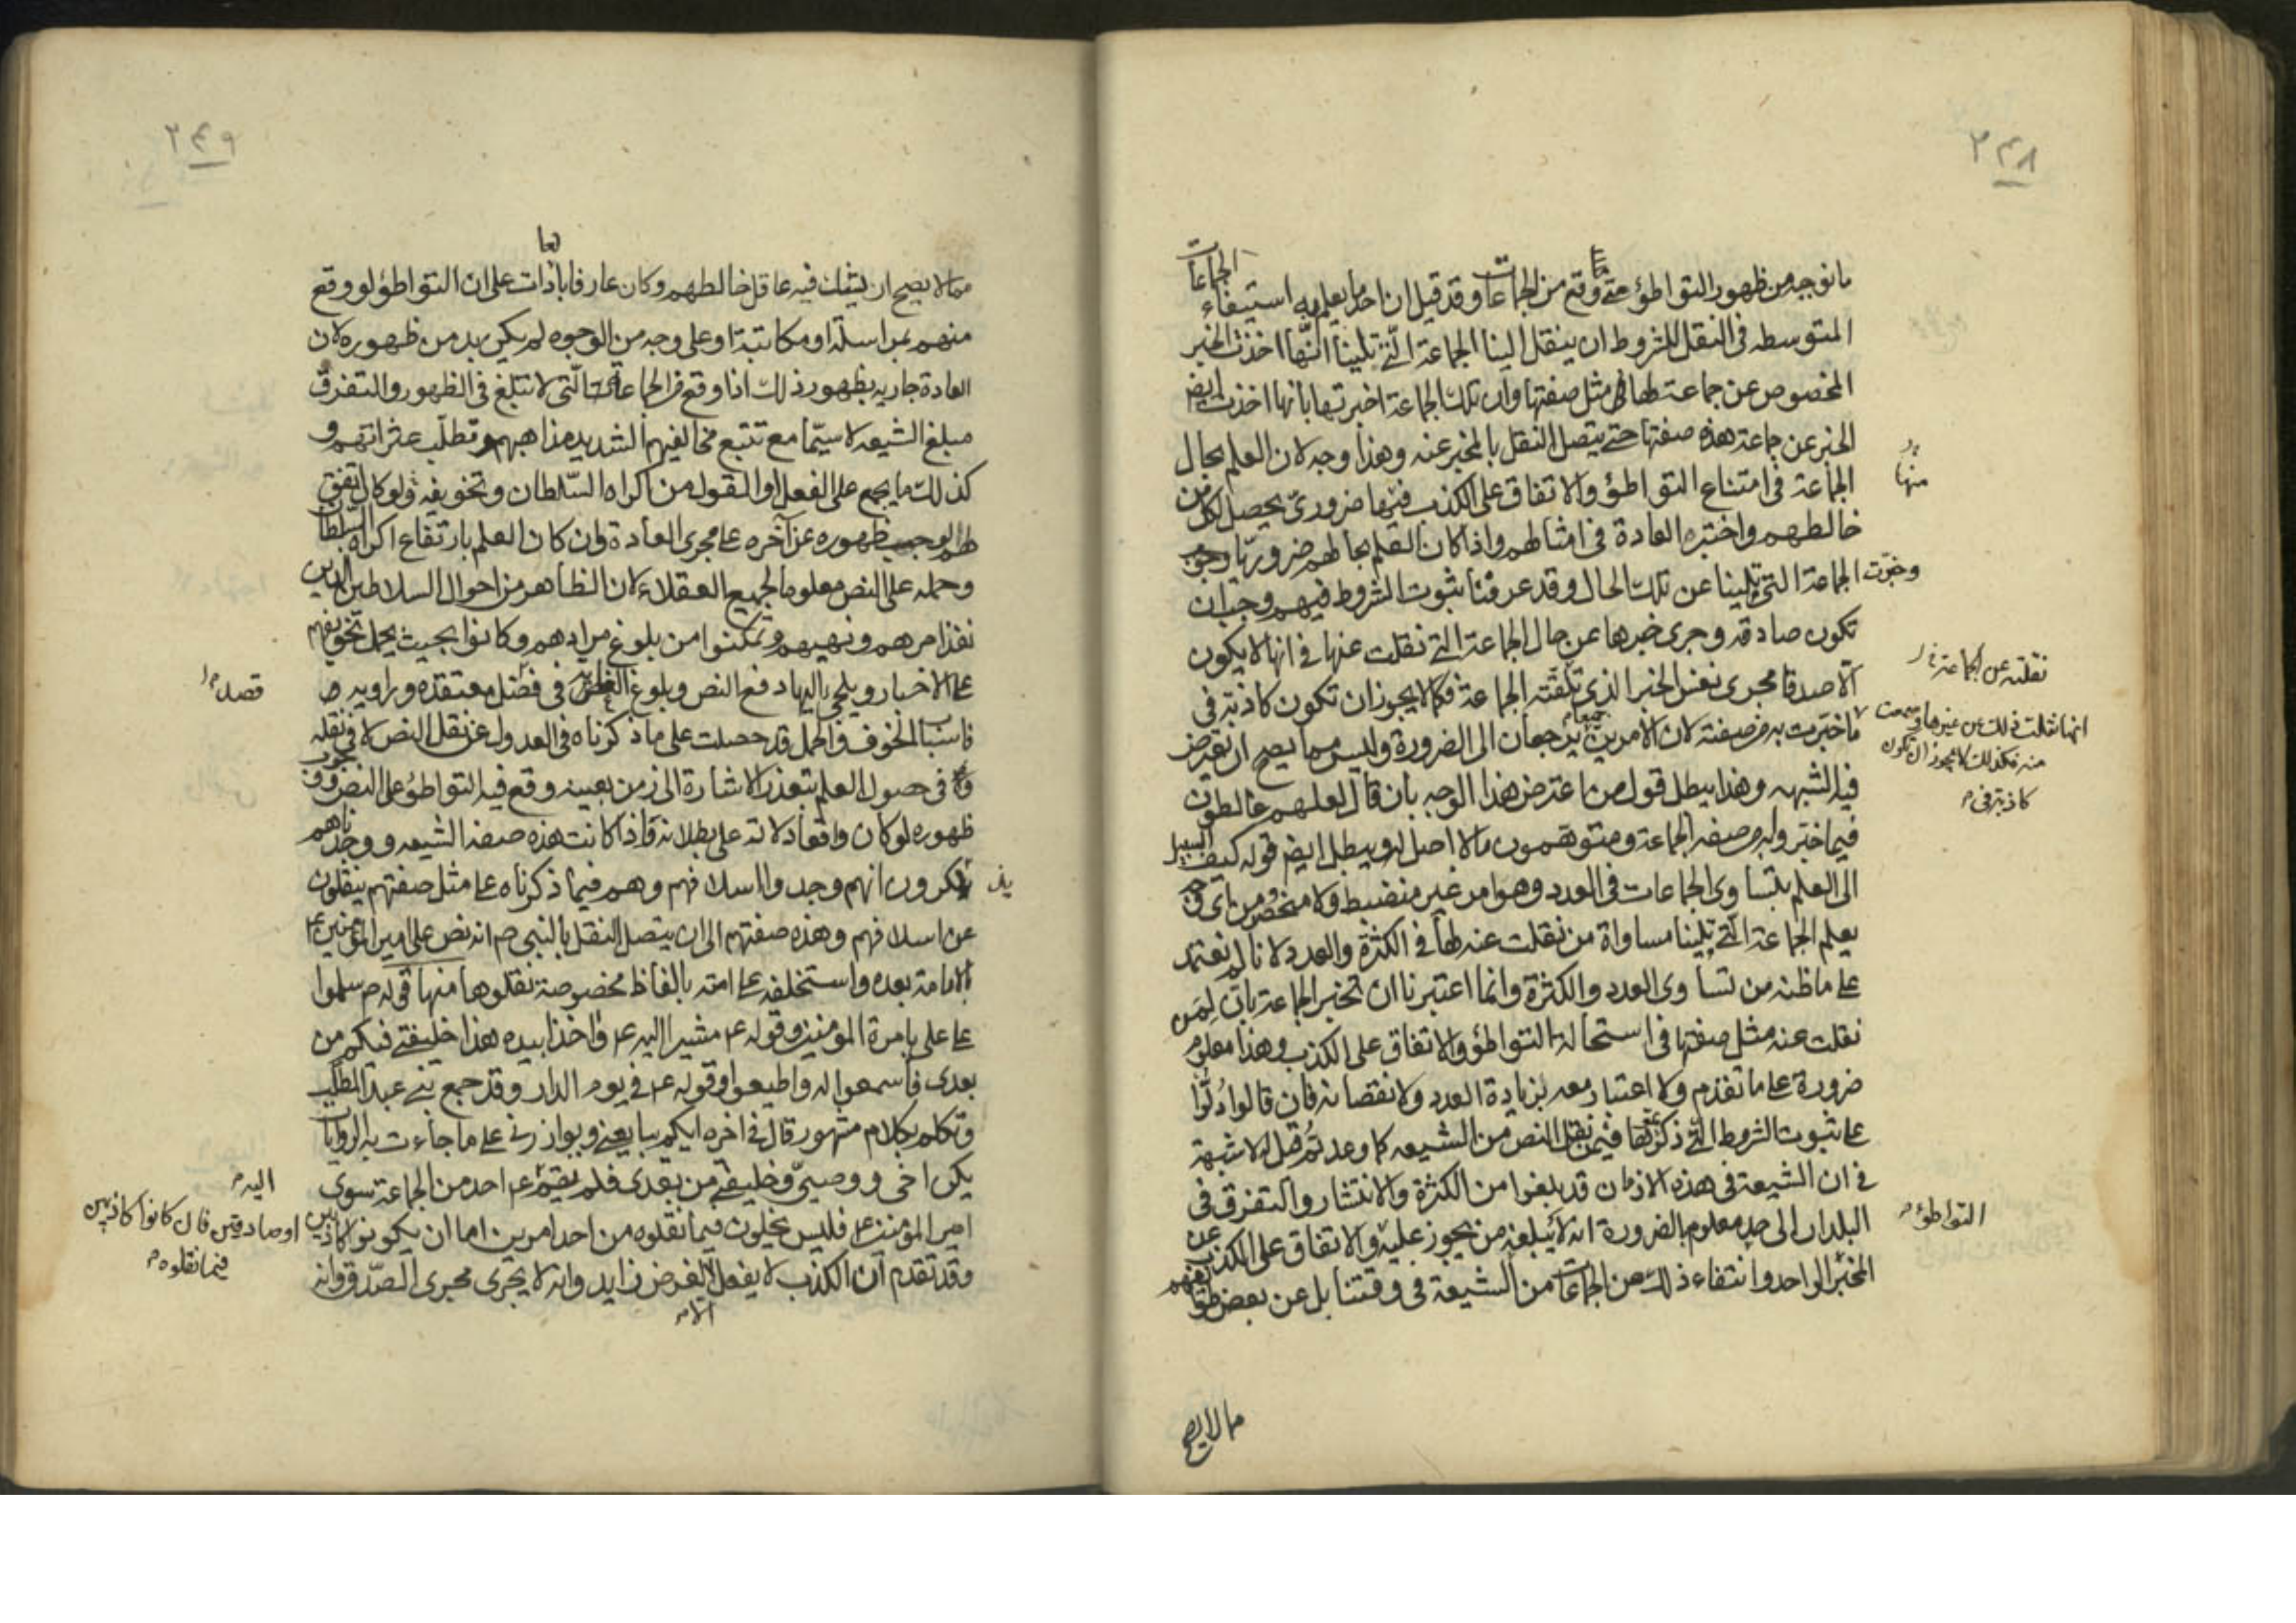 ٢٤٨
ما نوجبه من ظهور التواطؤ متى وقع من الجماعات وقد قيل ان احد ما يعلم به استيفاء الجماعات
المتوسطه في النقل للشروط ان ينقل الينا الجماعة الّتي تلينا انّها اخذت الخبر
المخصوص عن جماعة لها مثل صفتها وان تلك الجماعة اخبرتها بانها اخذت ايض
الخبر عن جماعة هذه صفتها حتى يتصل النقل بالمخبر عنه وهذا وجه لان العلم بحال
الجماعة في امتناع التواطؤ والاتفاق على الكذب فيها ضرورىّ يحصل لكل من
منها
خالطهم واختبر العادة في امثالهم واذا كان العلم بحالهم ضروريّا
وخبّرت الجماعة التي تلينا عن تلك الحال وقد عرفنا ثبوت الشروط فيهم وجب ان
تكون صادقه وجرى خبرها عن حال الجماعة التي نقلت عنها في انها لا يكون
نقلته عن الجماعة
الّا صدقا مجرى نفس الخبر الذي تلقته الجماعة فكما لا يجوز ان تكون كاذبة في
انها نقلت ذلك عن غيرها وسمعت
منه فكذلك لا يجوز ان تكون
كاذبة في
ما خبّرت به من صفته لان الامرين جميعا يرجعان الى الضرورة وليس مما يصح ان تعترض
فيه الشبهه وهذا يبطل قول من اعترض هذا الوجه بان قال لعلهم غالطون
فيما خبّروا به من صفه الجماعة ومتوهمون ما لا اصل له ويبطل ايض قوله كيف السبيل
الى العلم بتساوى الجماعات في العدد وهو امر غير منضبط ولا منحصر ومن اى وجه
يعلم الجماعة الّتي تلينا مساواة من نقلت عنه لها في الكثرة والعدد لانا لم نعتمد
على ما ظنه من تساوى العدد والكثرة وانما اعتبرنا ان تخبر الجماعة بان لمن
نقلت عنه مثل صفتها في استحالة التواطؤ والاتفاق على الكذب وهذا معلوم
ضرورة على ما تقدم ولا اعتبار معه بزيادة العدد ولا نقصانه فان قالوا دُلّوا
على ثبوت الشروط التي ذكرتموها فيمن نقل النص من الشيعه كما وعدتُم قيل له لا شبهة
في ان الشيعة في هذه الازمان قد بلغوا من الكثرة والانتشار والتفرق في
البلدان الى حد معلوم بالضرورة انه لا يبلغه من يجوز عليه والاتفاق على الكذب عن
التواطؤ
المخبر الواحد وانتفاء ذلك عن الجماعات من الشيعة في وقتنا بل عن بعض طوائفهم
مما لا يصح
٢٤٩
مما لا يصح ان يشك فيه عاقل خالطهم وكان عارفا بالعادات على ان التواطؤ لو وقع
منهم بمراسلة او مكاتبة او على وجه من الوجوه لم يكن بد من ظهوره لان
العادة جاريه بظهور ذلك اذا وقع من الجماعات الّتي لا تبلغ في الظهور والتفرق
مبلغ الشيعه لا سيّما مع تتبع مخالفيهم الشديد مذاهبهم وتطلّب عثراتهم و
كذلك ما يجمع على الفعل او القول من اكراه السّلطان وتخويفه ولو كان اتفق
لهم لوجب ظهوره عن آخره على مجرى العادة وان كان العلم بارتفاع اكراه السلطان
وحمله على النص معلوما لجميع العقلاء لان الظاهر من احوال السلاطين الذين
نفذ امرهم ونهيهم وتمكنوا من بلوغ مرادهم وكانوا بحيث يحمل تخويفهم
على الاخبار ويلجى اليها دفع النص وبلوغ الغرض في معتقده وراويه
قصد
فاسباب الخوف والحمل قد حصلت على ما ذكرناه في العدول عن نقل النص لا في نقله
في حصول العلم بتعذر الاشارة الى زمن بعينه وقع فيه التواطؤ على النص ووجوب
ظهوره لو كان واقعا دلالة على بطلانه فاذا كانت هذه صفه الشيعه ووجدناهم
يذكرون انهم وجدوا اسلافهم وهم فيما ذكرناه على مثل صفتهم ينقلون
عن اسلافهم وهذه صفتهم الى ان يتصل النقل بالنبي ص انه نص على امير المؤمنين ع
بالامامة بعده واستخلفه على امته بالفاظ مخصوصة نقلوها منها قوله ص سلموا
على على بامرة المومنين وقوله ع مشيرا اليه ع واخذا بيده هذا خليفتي فيكم من
بعدى فاسمعوا له واطيعوا وقوله ع في يوم الدار وقد جمع بني عبد المطّلب
وتكلم بكلام مشهور قال في اخره ايكم يبايعني ويوازرني على ما جاءت به الروايات
يكن اخى ووصيىّ وخليفتي من بعدى فلم يقم ع احد من الجماعة سوى
اليه
امير المؤمنين ع فليس يخلون فيما نقلوه من احد امرين اما ان يكونوا كاذبين
او صادقين فان كانوا كاذبين
فيما نقلوه
وقد تقدم ان الكذب لا يفعل الا لغرض زايد وانه لا يجرى مجرى الصّدق وانه
الا